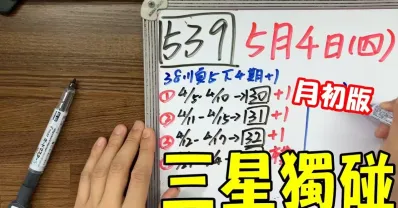 539 5月4日(四)
38順5下4期+1
月初版
① 4/5-4/10→30 +1
② 4/11-4/15→31 +1
③ 4/12-4/17→32 +1
三星獨碰